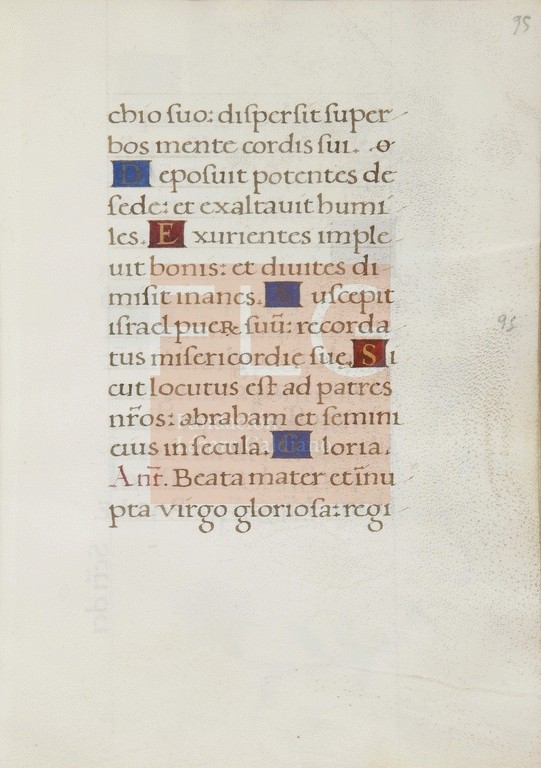 95
chio suo: dispersit super
bos mente cordis sui.
Deposuit potentes de
sede: et exaltauit humi
les. Exurientes imple
uit bonis: et diuites di
misit inanes. Suscepit
israel pueR suū: recorda
tus misericordię suę. Si
cut locutus est ad patres
nr̄os: abraham et semini
eius in secula. Gloria.
Ant̄. Beata mater et īnu
pta virgo gloriosa: regi
95
FLG